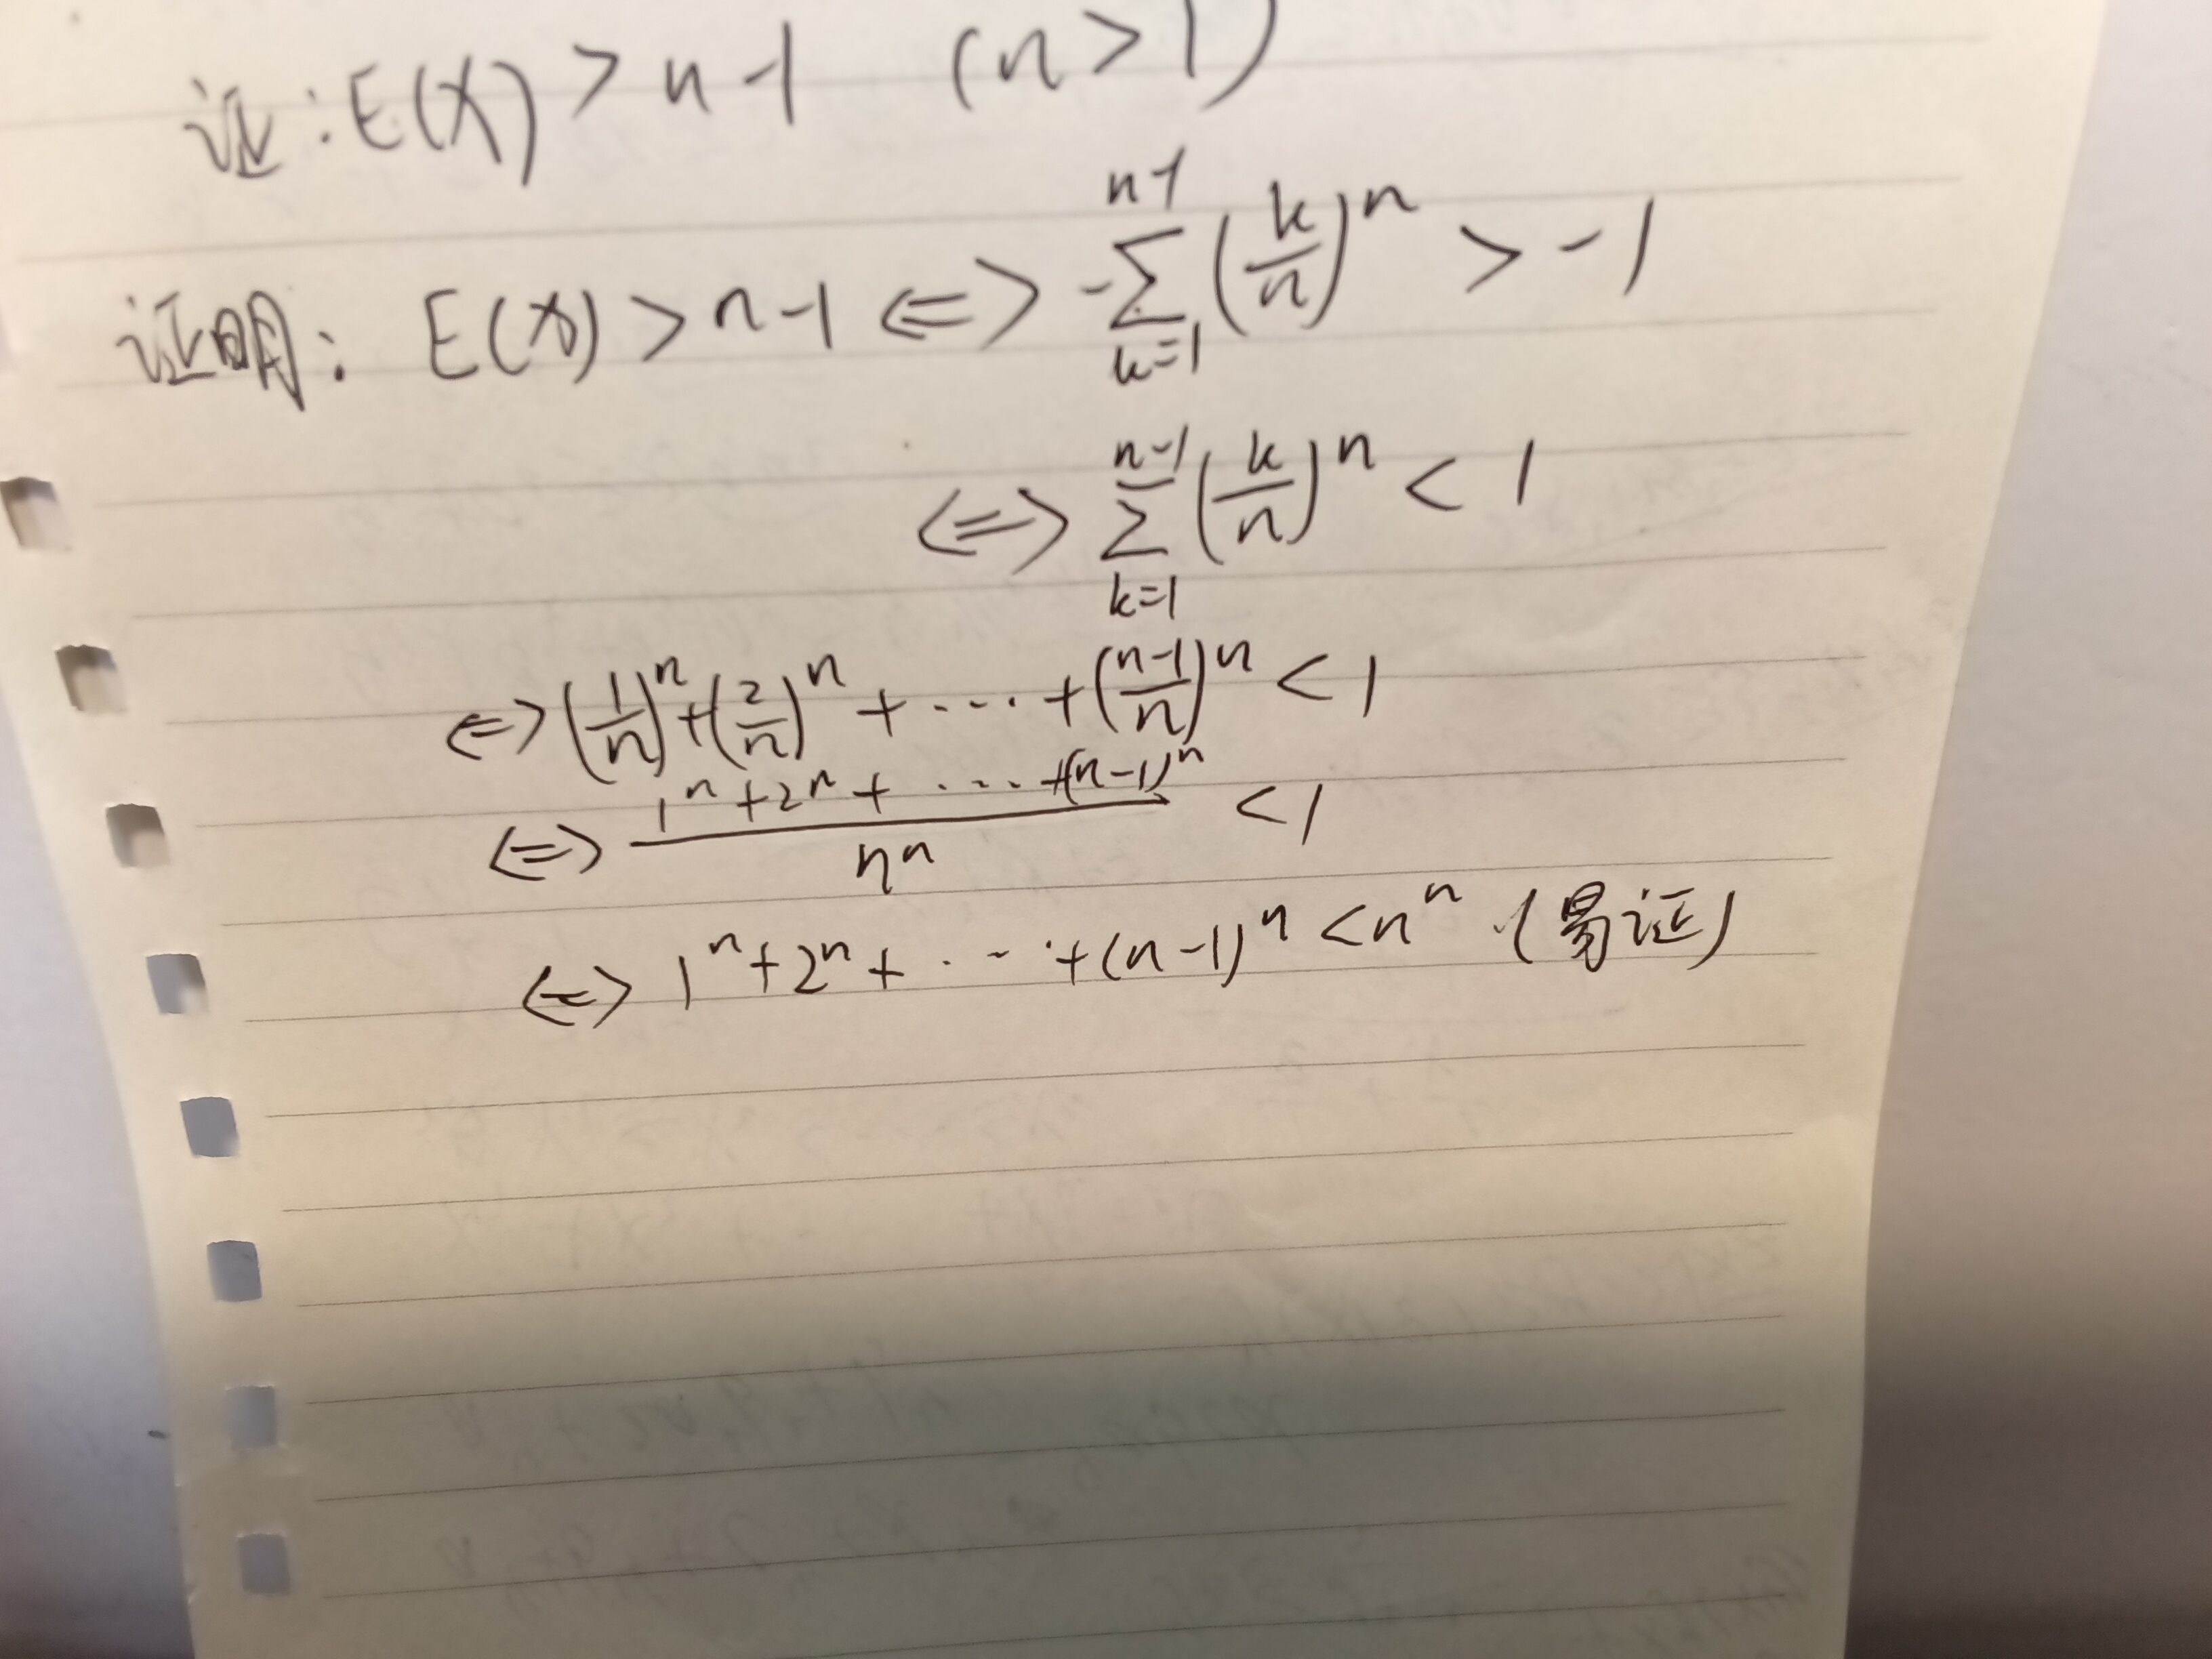 证:E(X)>n-1 (n>1)
证明: E(X)>n-1 <=> -∑_{k=1}^{n-1}(k/n)^n > -1
<=> ∑_{k=1}^{n-1}(k/n)^n < 1
<=> (1/n)^n+(2/n)^n+····+((n-1)/n)^n < 1
<=> (1^n+2^n+····+(n-1)^n)/n^n < 1
<=> 1^n+2^n+····+(n-1)^n<n^n.(易证)